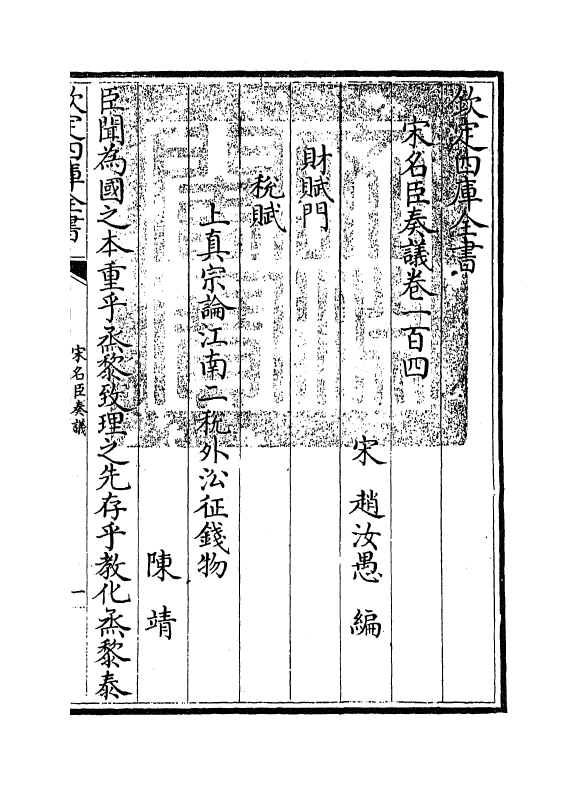 欽定四庫全書
宋名臣奏議卷一百四
宋 趙汝愚 編
財賦門
稅賦
上真宗論江南二稅外沿征錢物
陳靖
臣聞為國之本重乎烝黎致理之先存乎教化烝黎泰
欽定四庫全書
宋名臣奏議
一